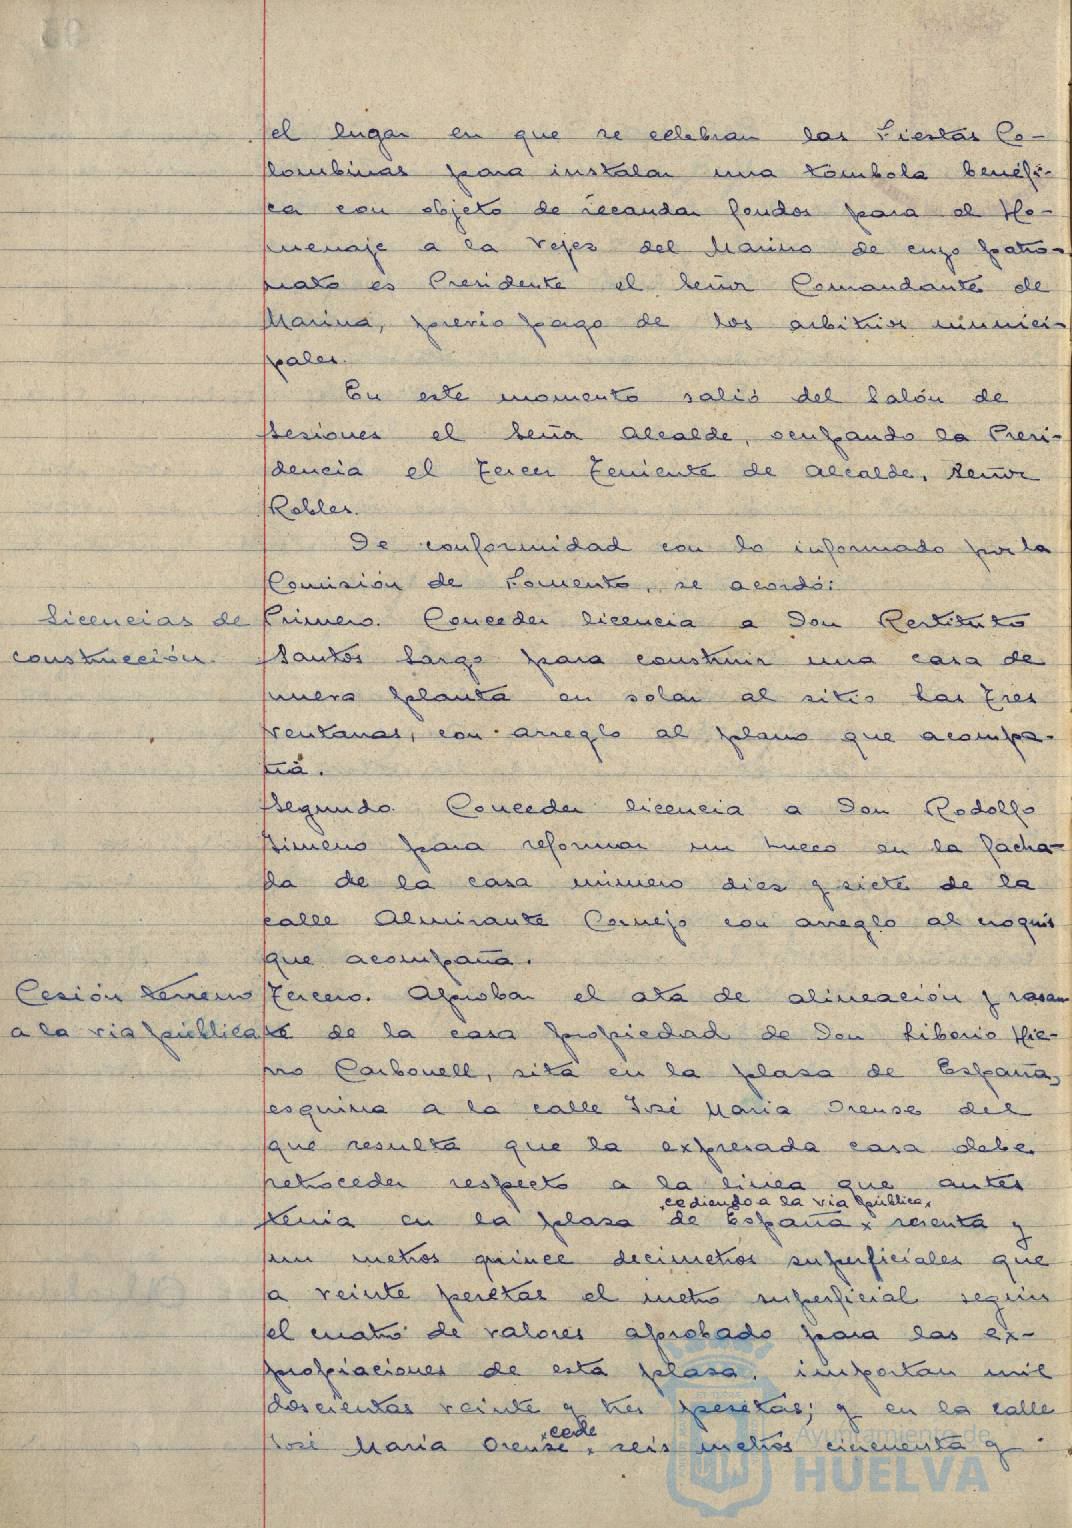 el lugar en que se celebran las Fiestas Co-
lombinas para instalar una tómbola benéfi-
ca con objeto de recaudar fondos para el Ho-
menaje a la Vejez del Marino de cuyo patro-
nato es Presidente el Señor Comandante de
Marina, previo pago de los arbitrios munici-
pales.
En este momento salió del Salón de
Sesiones el Señor Alcalde, ocupando la Presi-
dencia el Tercer Teniente de Alcalde, Señor
Robles.
De conformidad con lo informado por la
Comisión de Fomento, se acordó:
Licencias de
construcción.
Primero. Conceder licencia a Don Restituto
Santos Largo para construir una casa de
nueva planta en solar al sitio Las Tres
Ventanas, con arreglo al plano que acompa-
ña.
Segundo. Conceder licencia a Don Rodolfo
Jimeno para reformar un hueco en la facha-
da de la casa número diez y siete de la
calle Almirante Cornejo con arreglo al croquis
que acompaña.
Cesión terreno
a la via pública
Tercero. Aprobar el ata de alineación y rasan-
te de la casa propiedad de Don Liborio Hie-
rro Carbonell, sita en la plaza de España,
esquina a la calle José Maria Orense del
que resulta que la expresada casa debe
retroceder respecto a la linea que antes
cediendo a la via pública,
tenia en la plaza de España x sesenta y
un metros quince decimetros superficiales que
a veinte pesetas el metro superficial según
el cuatro de valores aprobado para las ex-
propiaciones de esta plaza, importan mil
doscientas veinte y tres pesetas; y en la calle
cede
José Maria Orense, seis metros cincuenta y
Ayuntamiento de
HUELVA